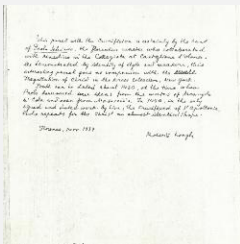 This panel with the Crucifixion is certainly by the hand
of Paolo Schiavo, the florentine master who collaborated
with Masolino in the Collegiata at Castiglione d'Olona.
As demonstrated by identity of style and measures, this
interesting panel goes as companion with the
Flagellation of Christ in the Kress Collection, New York.
Both can be dated about 1430, at the time when
Paolo borrowed some ideas from the works of
and even from . In 1430, in the only
signed and dated work by him, the Crucifixion of S. Apollonia,
Paolo repeats for the Christ an almost identical shape.
Firenze, Nov 1937
Roberto Longhi